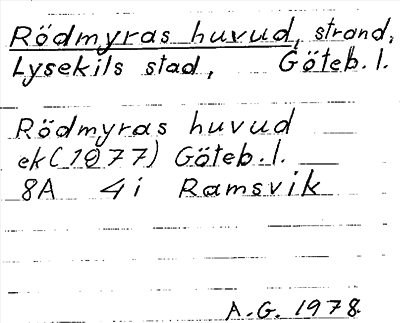 Rödmyras huvud, strand,
Lysekils stad, Göteb. l.
Rödmyras huvud
ek (1977) Göteb. l.
8A 4i Ramsvik
A.G. 1978.